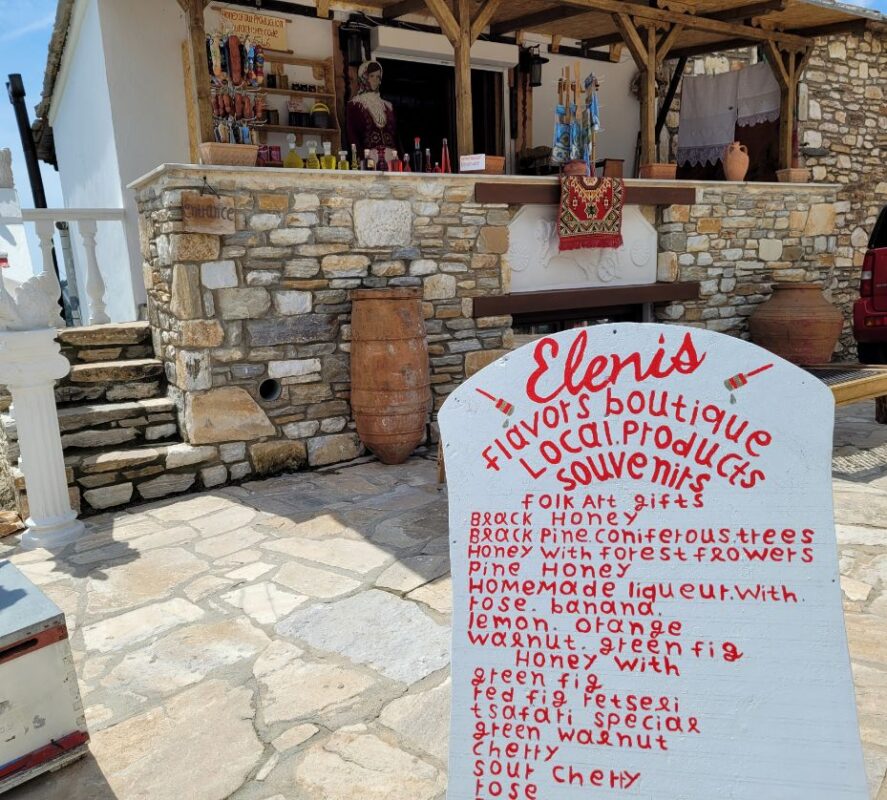 Honey of our Production
Entrance
Elenis
flavors boutique
Local.Products
souvenirs
folk Art gifts
Black Honey
Black Pine.coniferous.trees
Honey with forest flowers
Pine Honey
Homemade liqueur.with.
rose. banana.
lemon. orange
walnut. green fig
Honey with
green fig
red fig retseli
tsafari special
green walnut
cherry
sour cherry
rose